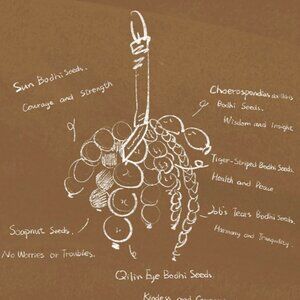 Sun Bodhi Seeds.
Courage and Strength
Choerospondias axillaris
Bodhi Seeds.
Wisdom and Insight
Tiger-Striped Bodhi Seeds
Health and Peace
Job's Tears Bodhi Seeds.
Harmony and Tranquility.
Soapnut Seeds.
No Worries or Troubles.
Qilin Eye Bodhi Seeds.
Kindness and